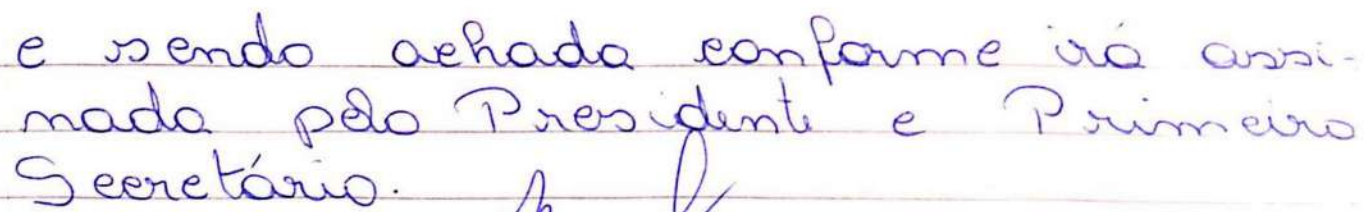 e sendo achada conforme irá assi-
nada pelo Presidente e Primeiro
Secretário.